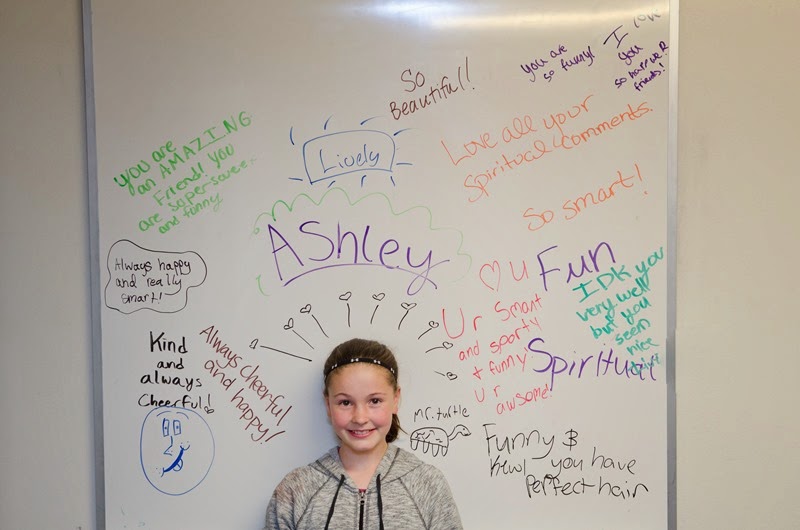 So
Beautiful!
you are
so funny!
I love
you
so happy R
friends!
you are
an AMAZING
Friend! you
are super sweet
and funny
Lively
Love all your
Spiritual comments.
So smart!
AShley
Always happy
and really
smart!
♡ U
Fun
IDK you
very well
but you
seem
nice
U r smart
and sporty
+ funny
U r
awsome!
Spiritual
Kind
and
always
Cheerful!
Always cheerful
and happy!
Mr. turtle
Funny &
Kewl you have
Perfect hair